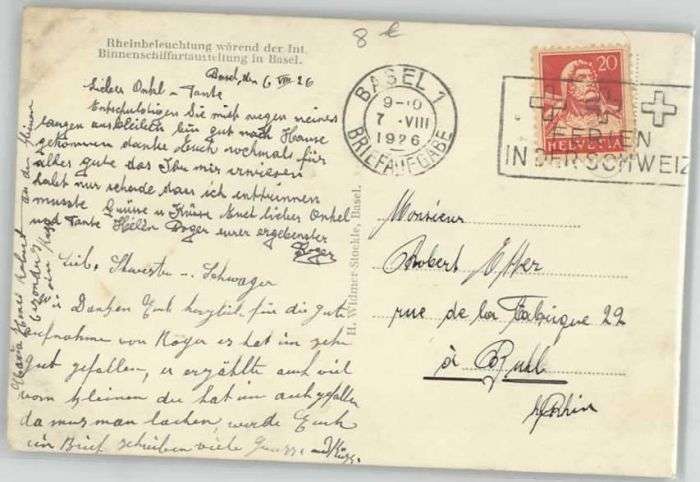 8 €
Rheinbeleuchtung wärend der Int.
Binnenschiffartaustellung in Basel.
Basel, den 6 VIII 26
Lieber Onkel – Tante
Entschuldigen Sie mich wegen meines
langen ausbleiben bin gut nach Hause
gekommen danke Euch nochmals für
alles gute das Ihr mir erwiesen
habt nur schade dass ich entrinnen
musste Grüsse u Küsse Euch lieber Onkel
und Tante Helen Roger eurer ergebenster
Roger
Lieb. Schwester u. Schwager
Danken Euch herzlich für die gute
aufnahme von Roger es hat im sehr
gut gefallen, er erzählte auch viel
vom kleinen du hat im auch gefallen
da mus man lachen, werde Euch
ein Brief schreiben viele Grusse und Küss.
H. Widmer-Stöckle, Basel.
BASEL 1
9-10
7. VIII
1926
BRIEFAUFGABE
20
HELVETIA
FERIEN
IN DER SCHWEIZ
Monsieur
Robert
rue de la Fabrique 22
à Buhl
s/Rhin